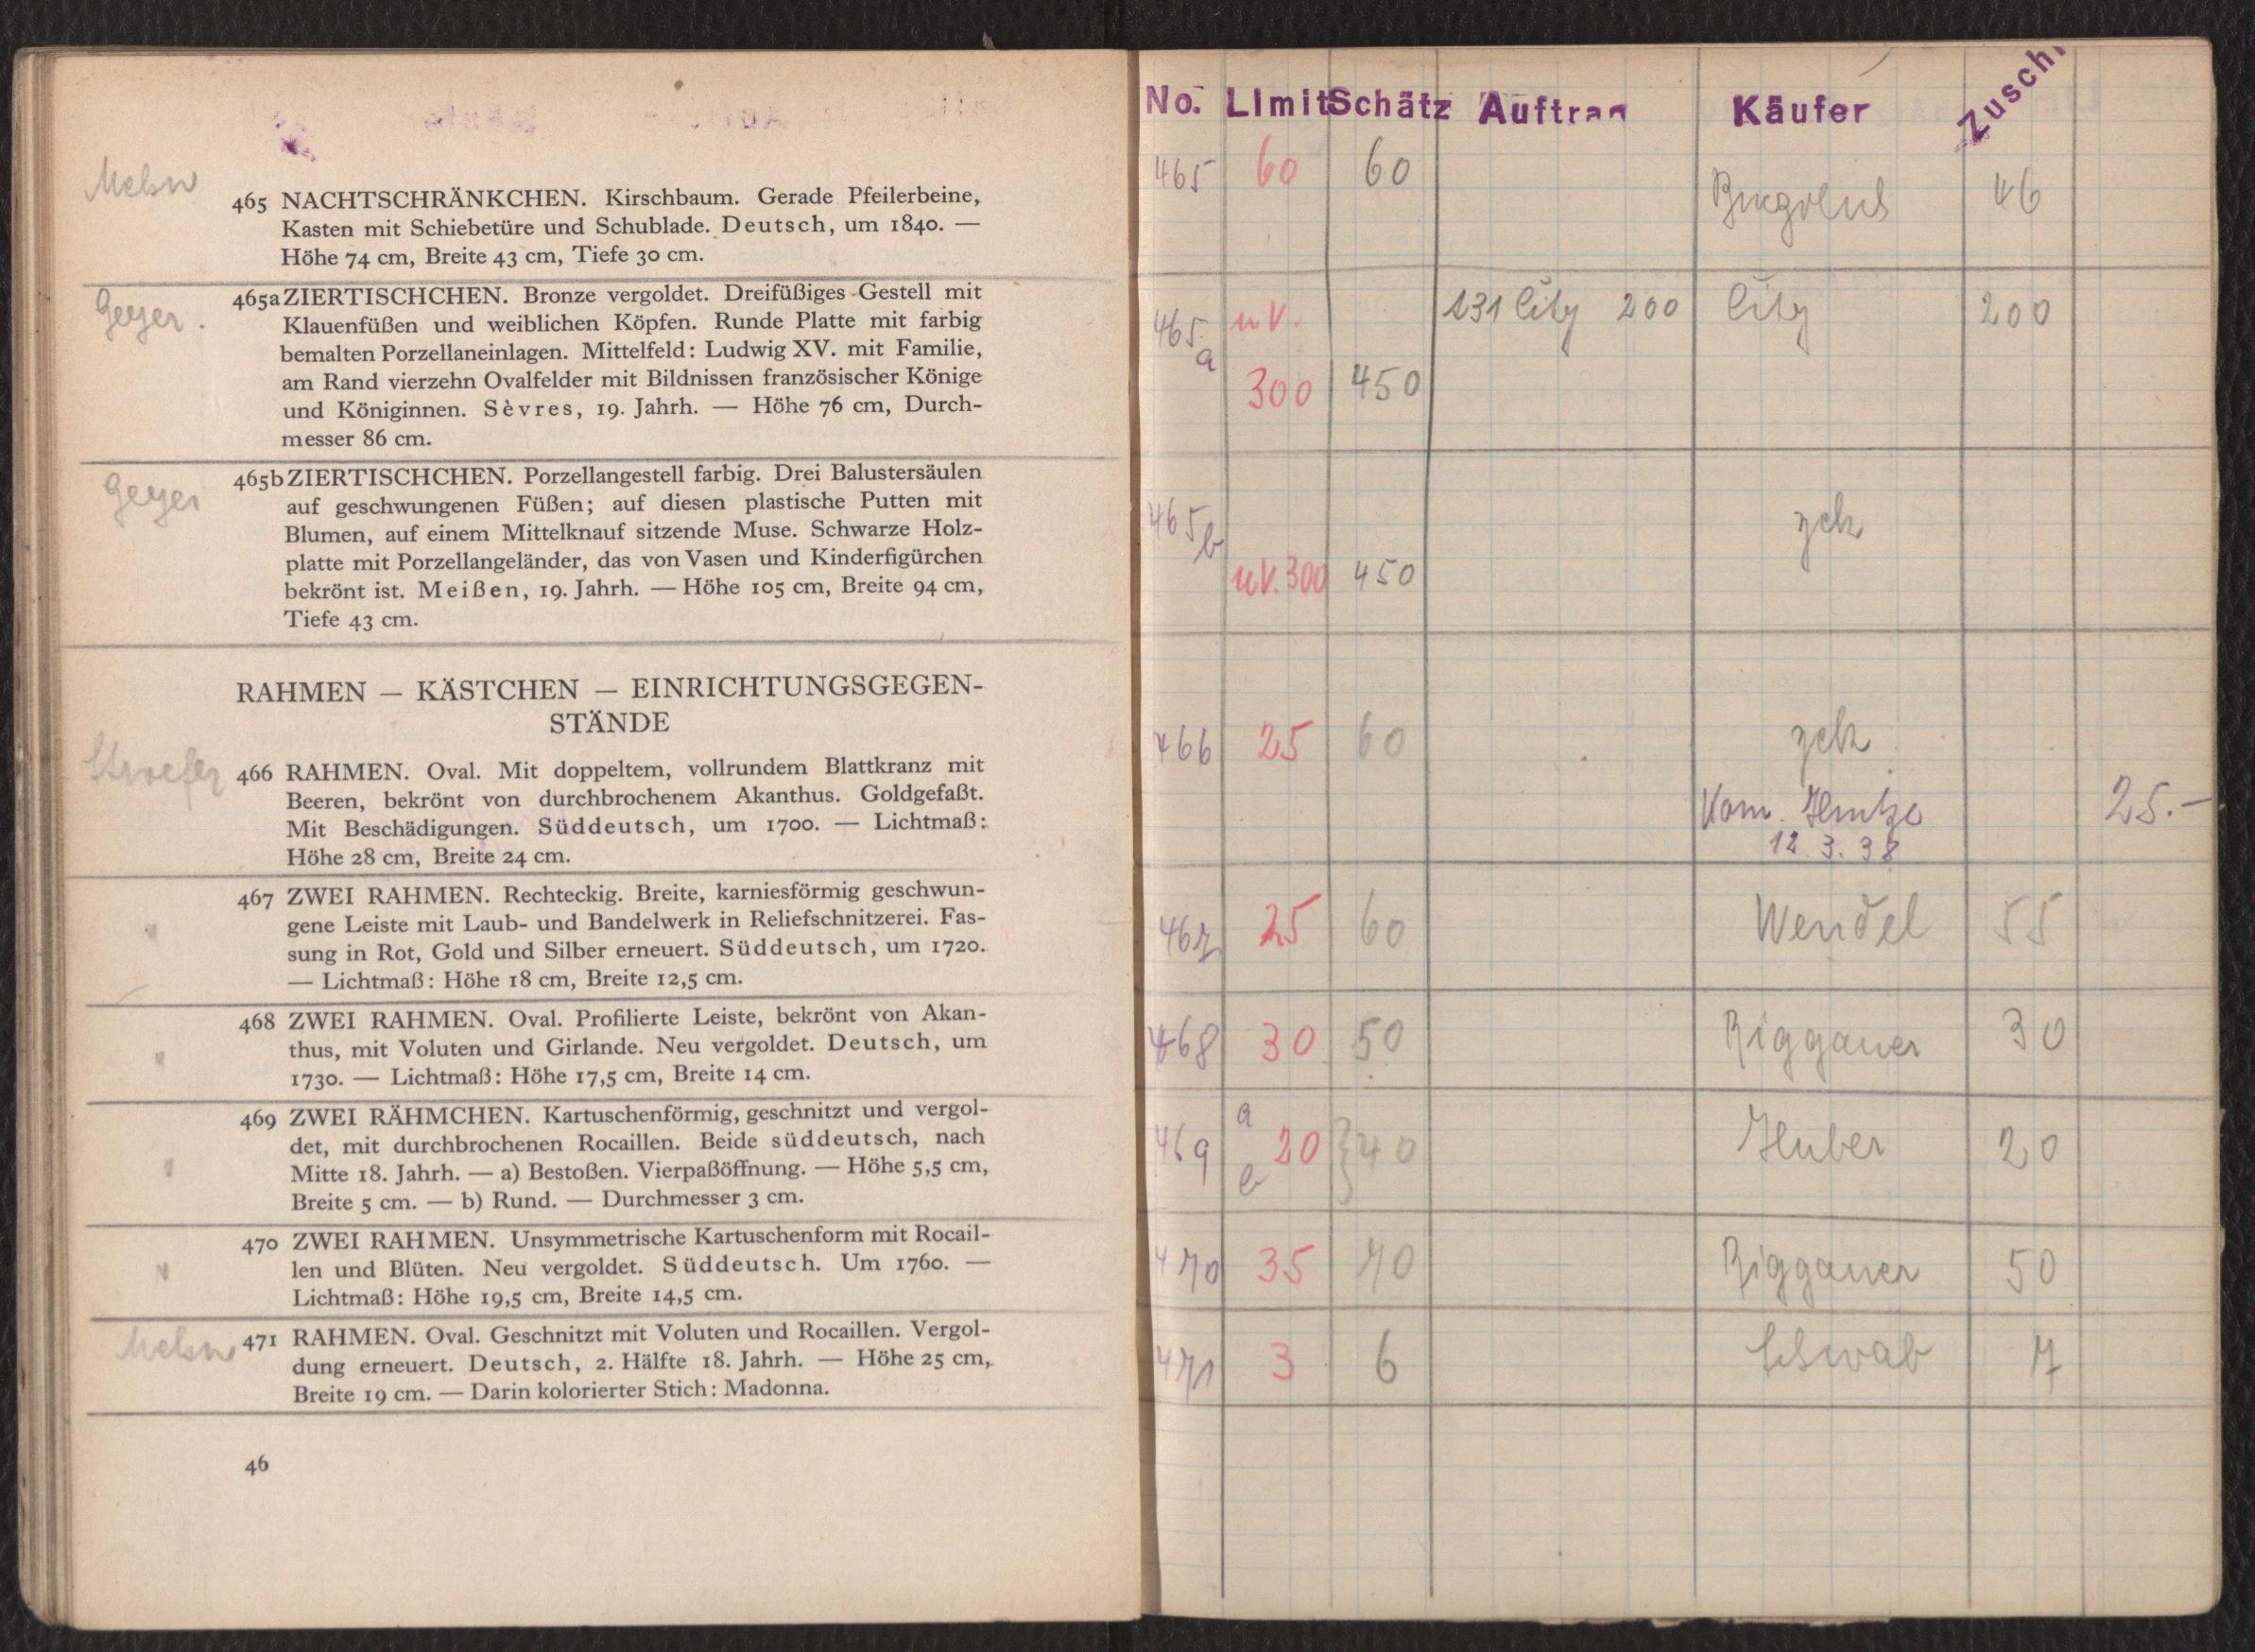 Geyer.
Geyer
465 NACHTSCHRÄNKCHEN. Kirschbaum. Gerade Pfeilerbeine,
Kasten mit Schiebetüre und Schublade. Deutsch, um 1840. —
Höhe 74 cm, Breite 43 cm, Tiefe 30 cm.
465a ZIERTISCHCHEN. Bronze vergoldet. Dreifüßiges Gestell mit
Klauenfüßen und weiblichen Köpfen. Runde Platte mit farbig
bemalten Porzellaneinlagen. Mittelfeld: Ludwig XV. mit Familie,
am Rand vierzehn Ovalfelder mit Bildnissen französischer Könige
und Königinnen. Sèvres, 19. Jahrh. — Höhe 76 cm, Durch-
messer 86 cm.
465b ZIERTISCHCHEN. Porzellangestell farbig. Drei Balustersäulen
auf geschwungenen Füßen; auf diesen plastische Putten mit
Blumen, auf einem Mittelknauf sitzende Muse. Schwarze Holz-
platte mit Porzellangeländer, das von Vasen und Kinderfigürchen
bekrönt ist. Meißen, 19. Jahrh. — Höhe 105 cm, Breite 94 cm,
Tiefe 43 cm.
RAHMEN — KÄSTCHEN — EINRICHTUNGSGEGEN-
STÄNDE
466 RAHMEN. Oval. Mit doppeltem, vollrundem Blattkranz mit
Beeren, bekrönt von durchbrochenem Akanthus. Goldgefaßt.
Mit Beschädigungen. Süddeutsch, um 1700. — Lichtmaß:
Höhe 28 cm, Breite 24 cm.
" 467 ZWEI RAHMEN. Rechteckig. Breite, karniesförmig geschwun-
gene Leiste mit Laub- und Bandelwerk in Reliefschnitzerei. Fas-
sung in Rot, Gold und Silber erneuert. Süddeutsch, um 1720.
— Lichtmaß: Höhe 18 cm, Breite 12,5 cm.
" 468 ZWEI RAHMEN. Oval. Profilierte Leiste, bekrönt von Akan-
thus, mit Voluten und Girlande. Neu vergoldet. Deutsch, um
1730. — Lichtmaß: Höhe 17,5 cm, Breite 14 cm.
" 469 ZWEI RÄHMCHEN. Kartuschenförmig, geschnitzt und vergol-
det, mit durchbrochenen Rocaillen. Beide süddeutsch, nach
Mitte 18. Jahrh. — a) Bestoßen. Vierpaßöffnung. — Höhe 5,5 cm,
Breite 5 cm. — b) Rund. — Durchmesser 3 cm.
" 470 ZWEI RAHMEN. Unsymmetrische Kartuschenform mit Rocail-
len und Blüten. Neu vergoldet. Süddeutsch. Um 1760. —
Lichtmaß: Höhe 19,5 cm, Breite 14,5 cm.
471 RAHMEN. Oval. Geschnitzt mit Voluten und Rocaillen. Vergol-
dung erneuert. Deutsch, 2. Hälfte 18. Jahrh. — Höhe 25 cm,
Breite 19 cm. — Darin kolorierter Stich: Madonna.
46
No. Limit Schätz Auftrag Käufer Zuschl
465 60 60 46
465a u.V. 131 City 200 City 200
300 450
465b zck
u.V. 300 450
466 25 60 zck
25.-
12.3.38
467 25 60 Wendel 55
468 30 50 Riggauer 30
469 a b 20 40 Huber 20
470 35 70 Riggauer 50
471 3 6 Schwab 7